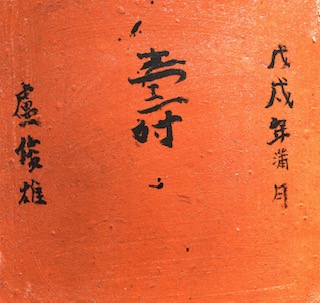 戊戌年蒲月
壽
盧俊雄